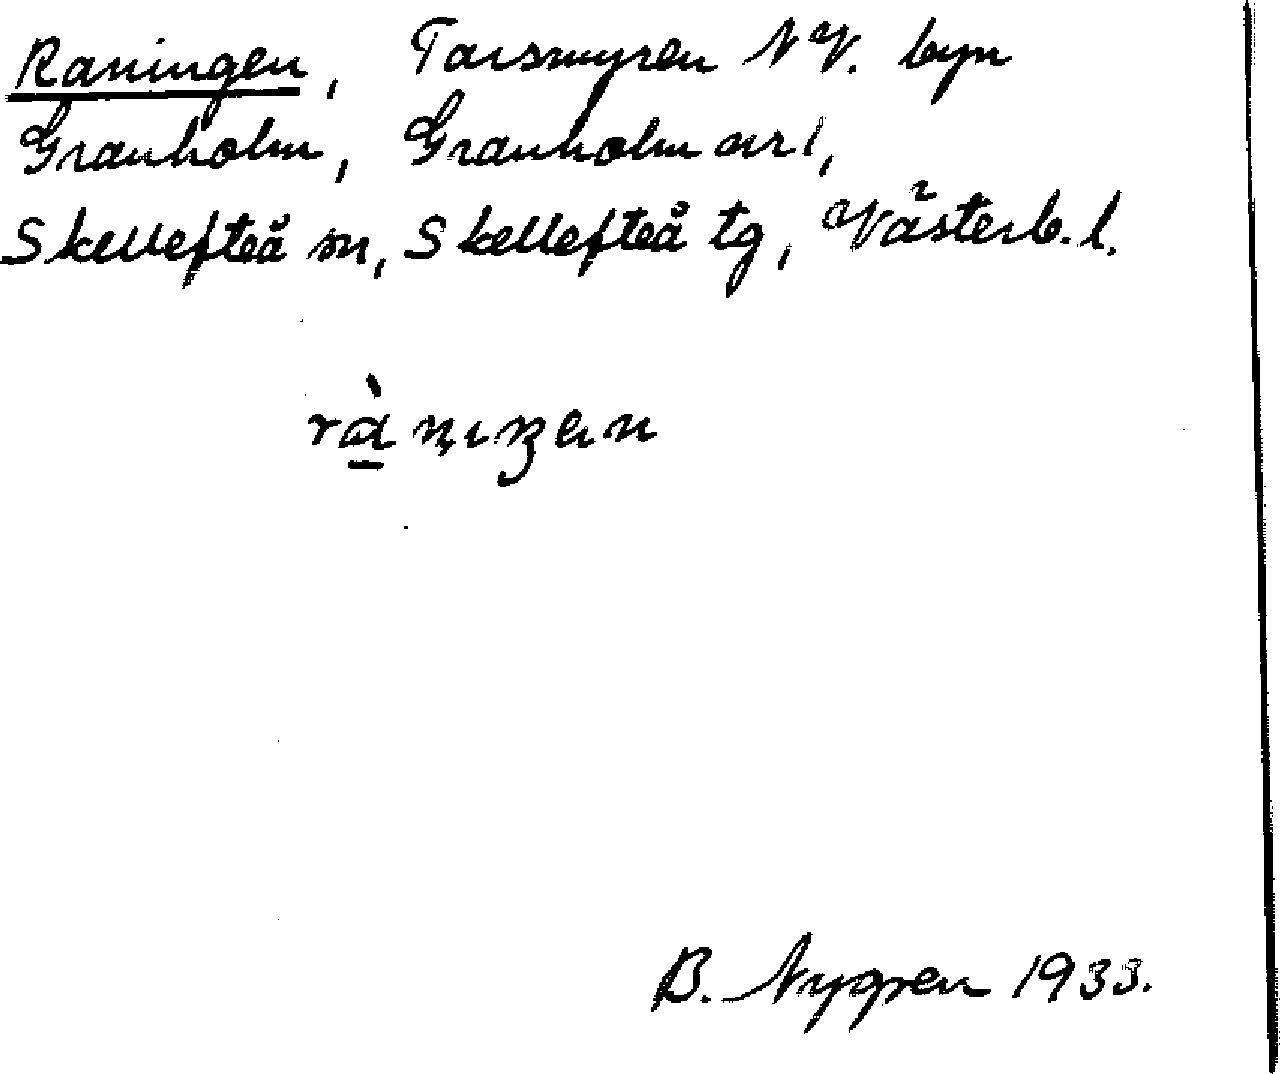 Raningen, Tarsmyren NV. byn
Granholm, Granholm nr 1,
Skellefteå sn, Skellefteå tg, Västerb. l.
B. Nygren 1933.